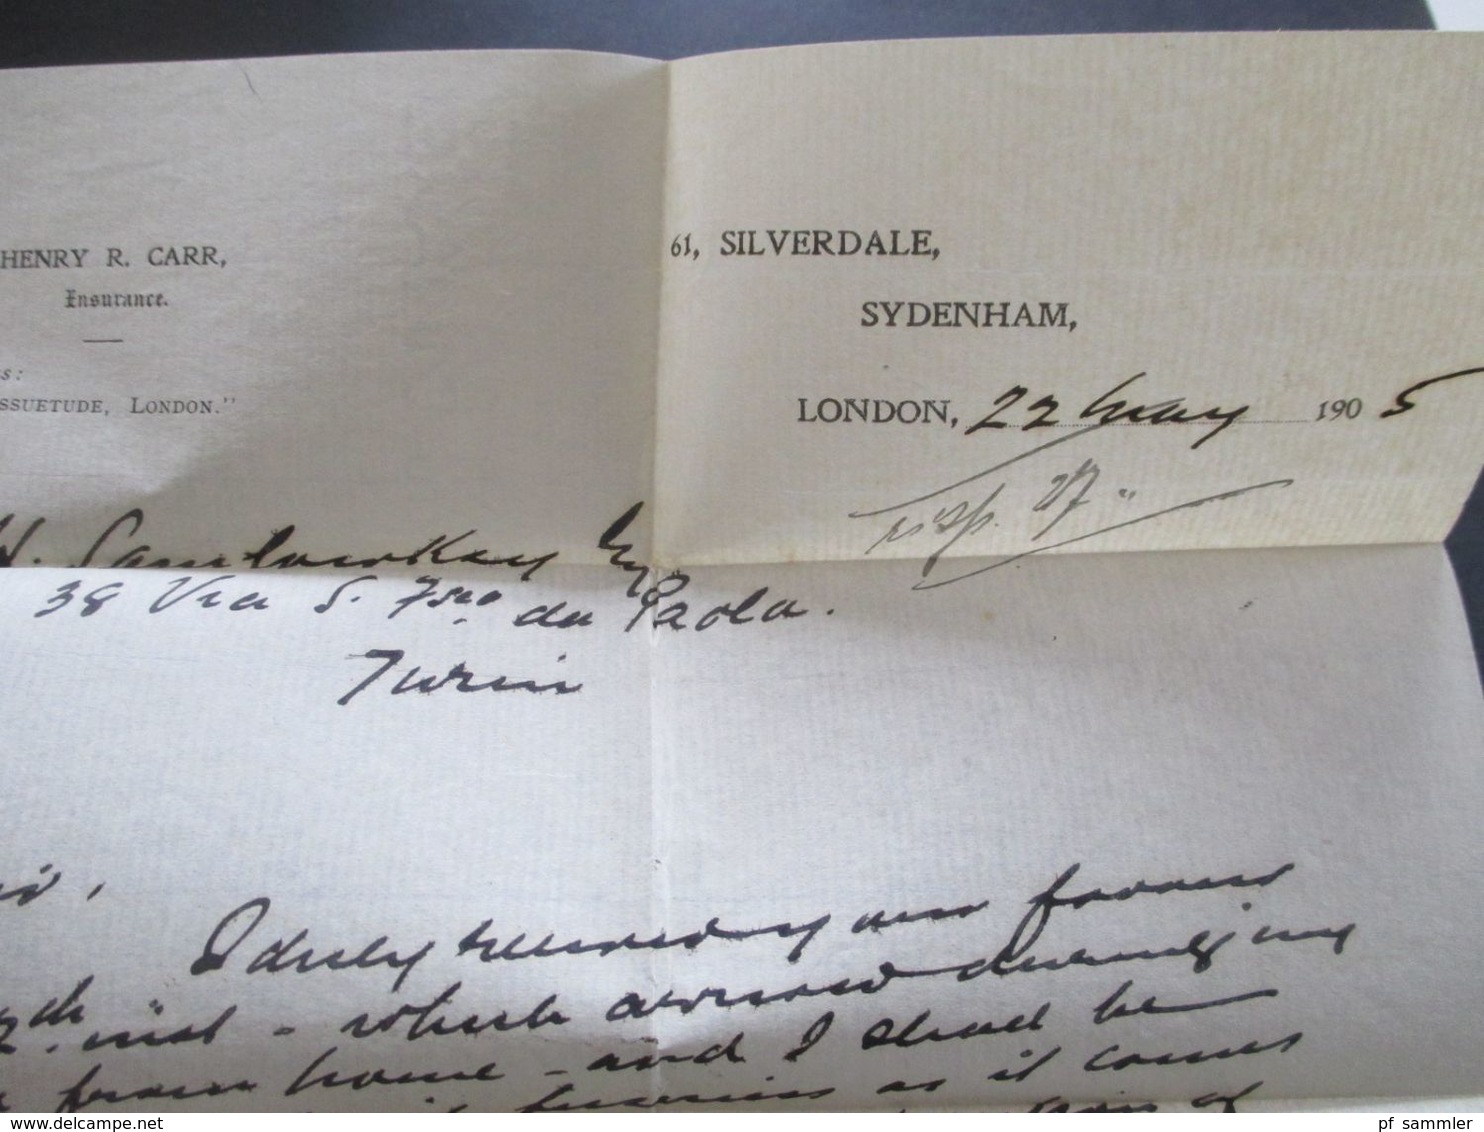 HENRY R. CARR,
Insurance.
ss:
SSUETUDE, LONDON."
61, SILVERDALE,
SYDENHAM,
LONDON, 22 May 1905
risp. 27
H. Sambowskay Esq
38 Via S. Fsco da Paola.
Turin
I duly received your favour
th. inst - which arrived during my
from home - and I shall be
as it comes
of
pf_sammler
www.delcampe.net